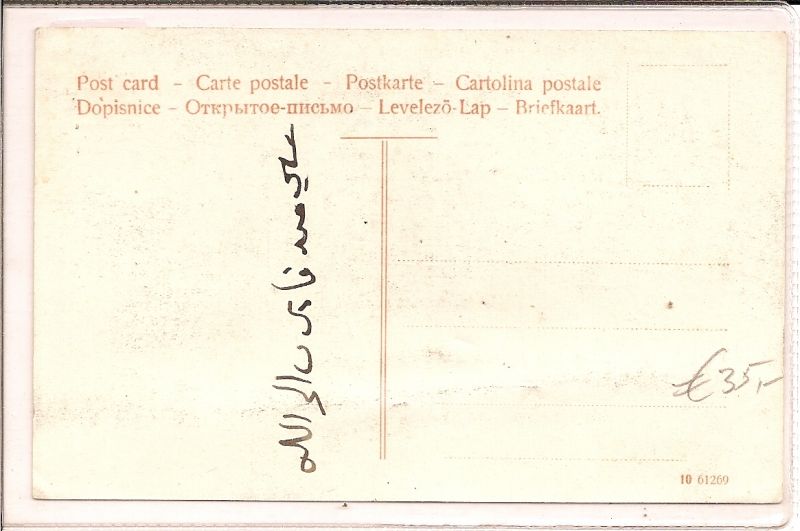 Post card – Carte postale – Postkarte – Cartolina postale
Dopisnice – Открытое-письмо – Levelező-Lap – Briefkaart.
€ 35,-
10 61269